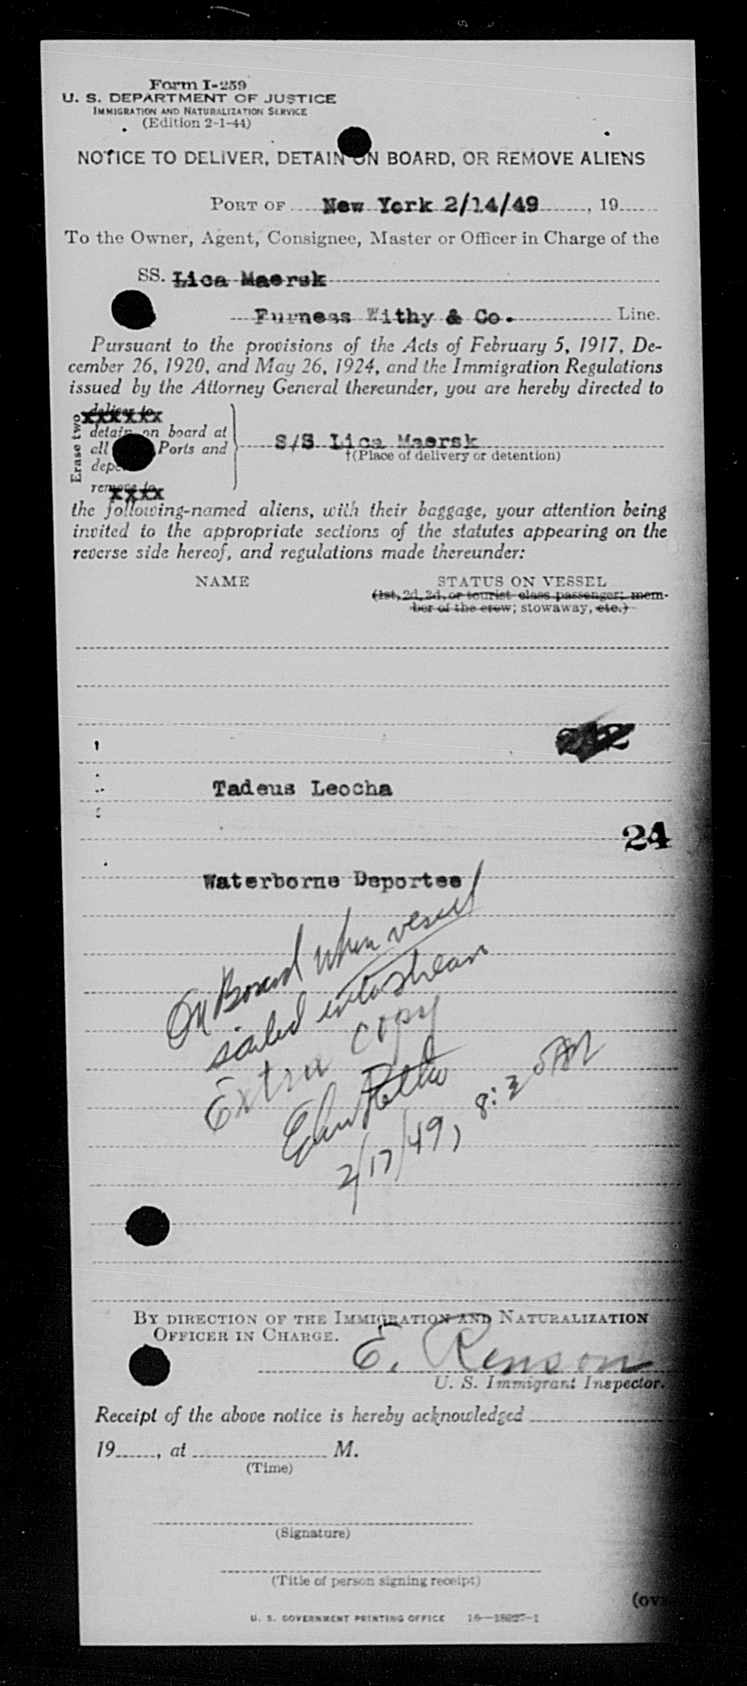 Form I-259
U. S. DEPARTMENT OF JUSTICE
IMMIGRATION AND NATURALIZATION SERVICE
(Edition 2-1-44)
NOTICE TO DELIVER, DETAIN ON BOARD, OR REMOVE ALIENS
PORT OF New York 2/14/49, 19
To the Owner, Agent, Consignee, Master or Officer in Charge of the
SS. Lica Maersk
Furness Withy & Co. Line.
Pursuant to the provisions of the Acts of February 5, 1917, De-
cember 26, 1920, and May 26, 1924, and the Immigration Regulations
issued by the Attorney General thereunder, you are hereby directed to
Erase two
deliver to
detain on board at
all Ports and
S/S Lica Maersk
†(Place of delivery or detention)
remove to
the following-named aliens, with their baggage, your attention being
invited to the appropriate sections of the statutes appearing on the
reverse side hereof, and regulations made thereunder:
NAME STATUS ON VESSEL
(1st, 2d, 3d, or tourist class passenger; mem-
ber of the crew; stowaway, etc.)
Tadeus Leocha
24
Waterborne Deportee
On Board when vessel
sailed into stream
Extra copy
2/17/49, 8:30 AM
BY DIRECTION OF THE IMMIGRATION AND NATURALIZATION
OFFICER IN CHARGE.
E. Renson
U. S. Immigrant Inspector.
Receipt of the above notice is hereby acknowledged
19, at M.
(Time)
(Signature)
(Title of person signing receipt)
(ov
U. S. GOVERNMENT PRINTING OFFICE 16—18227-1